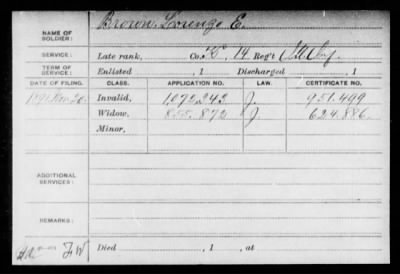 NAME OF SOLDIER: Brown Lorenzo E.
SERVICE: Late rank, Co. 14 Reg't Inf.
TERM OF SERVICE: Enlisted , 1 Discharged , 1
DATE OF FILING. CLASS. APPLICATION NO. LAW. CERTIFICATE NO.
Invalid, 1.072.243 J. 951.499
Widow, 855.872 J. 624.886.
Minor,
ADDITIONAL SERVICES:
REMARKS:
Died , 1 , at